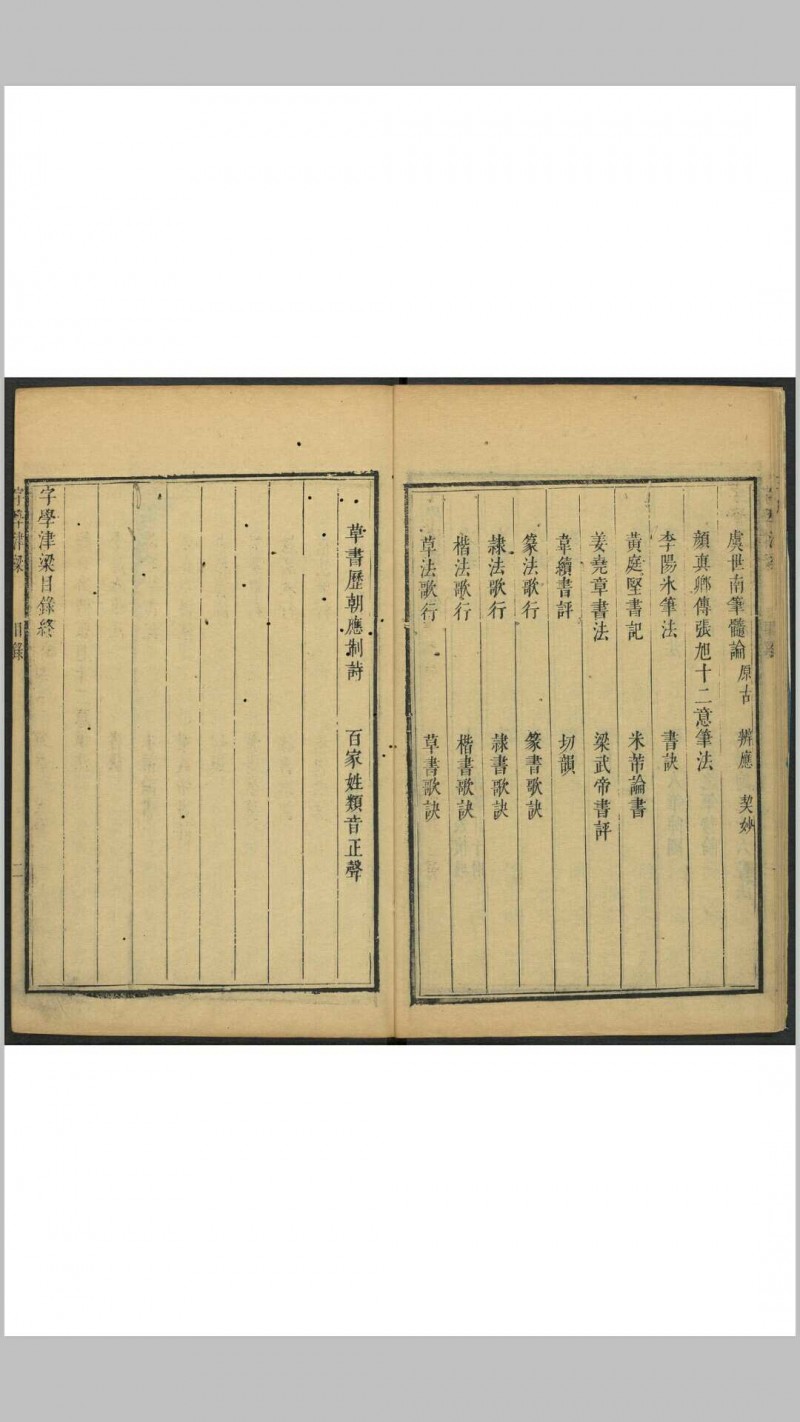 虞世南筆髓論 原古 辨應 契妙
顔真卿傳張旭十二意筆法
李陽氷筆法 書訣
黃庭堅書記 米芾論書
姜堯章書法 梁武帝書評
韋續書評 切韻
篆法歌行 篆書歌訣
隸法歌行 隸書歌訣
楷法歌行 楷書歌訣
草法歌行 草書歌訣
草書歷朝應制詩 百家姓類音正聲
字學津梁目錄終
字學津梁 目錄 二